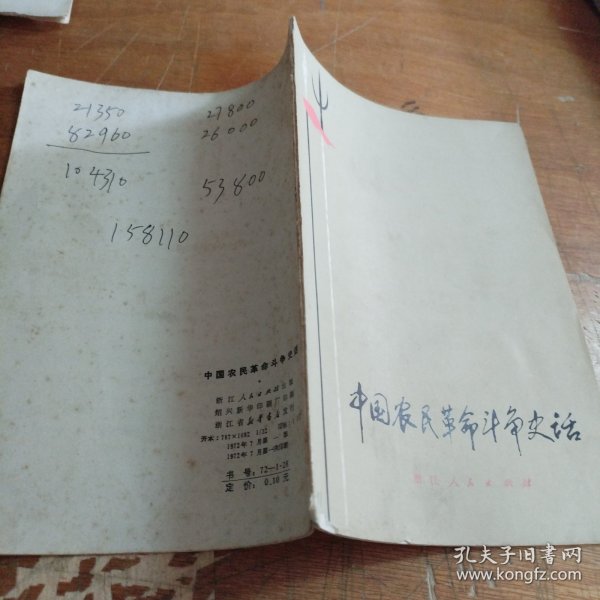 21350
82960
104310
27800
26000
53800
158110
中国农民革命斗争史话
浙江人民出版社出版
绍兴新华印刷厂印刷
浙江省新华书店发行
开本：787×1092 1/32
1972年7月第一版
1972年7月第一次印刷
书号：72—1·26
定价：0.10元
中国农民革命斗争史话
浙江人民出版社
孔夫子旧书网
www.kongfz.com